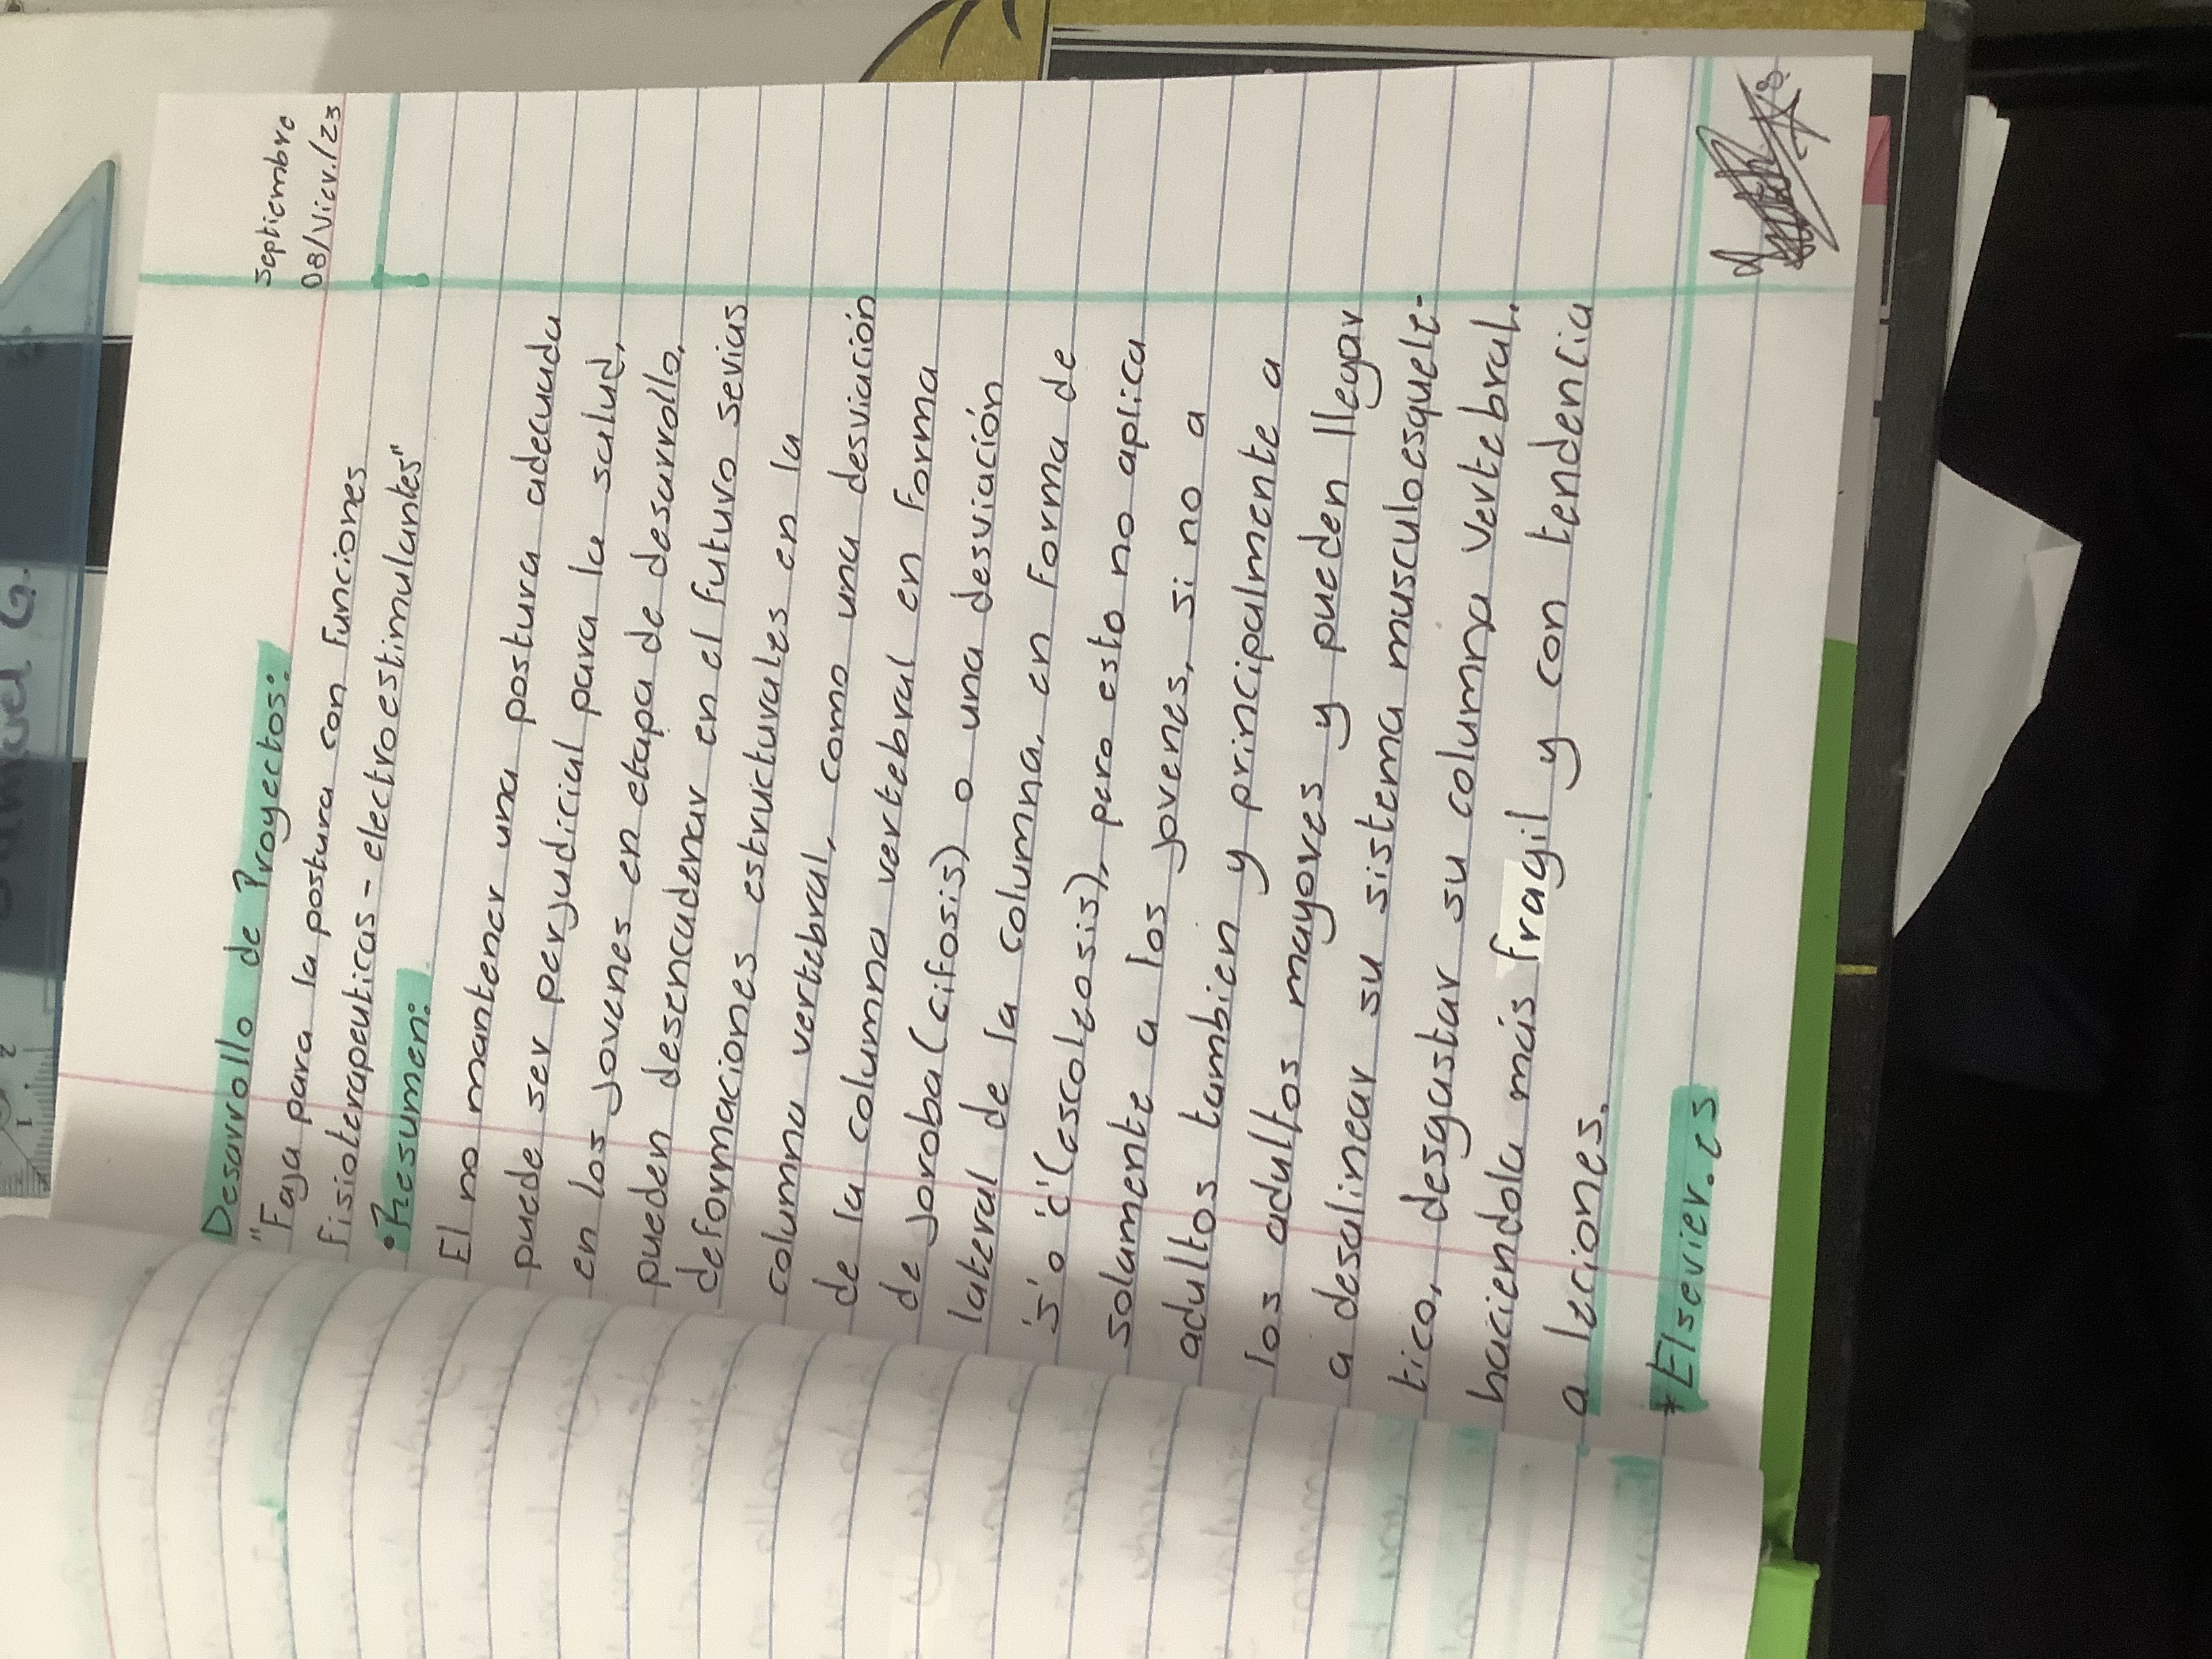 Septiembre
08/Vier./23
Desarrollo de Proyectos:
"Faja para la postura con funciones
fisioterapeuticas - electroestimulantes"
• Resumen:
El no mantener una postura adecuada
puede ser perjudicial para la salud,
en los jovenes en etapa de desarrollo,
pueden desencadenar en el futuro serias
deformaciones estructurales en la
columna vertebral, como una desviación
de la columna vertebral en forma
de joroba (cifosis) o una desviación
lateral de la columna, en forma de
's' o 'c' (escoleosis), pero esto no aplica
solamente a los jovenes, si no a
adultos tambien y principalmente a
los adultos mayores y pueden llegar
a desalinear su sistema musculoesquele-
tico, desgastar su columna vertebral,
haciendola más fragil y con tendencia
a leciones.
* Elsevier.es
Samuel G.
1 2